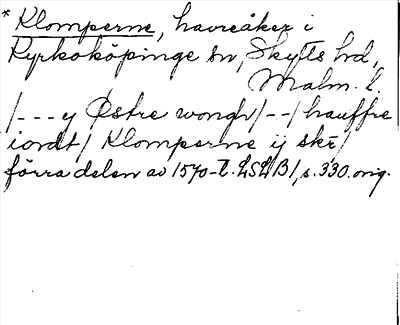 * Klomperne, havreåker i
Kyrkoköpinge sn, Skytts hd,
Malm. l.
/---y Østre wongh/--/hauffre
iordt/ Klomperne ij skē/
förra delen av 1570-t. LSLB1, s. 330. orig.